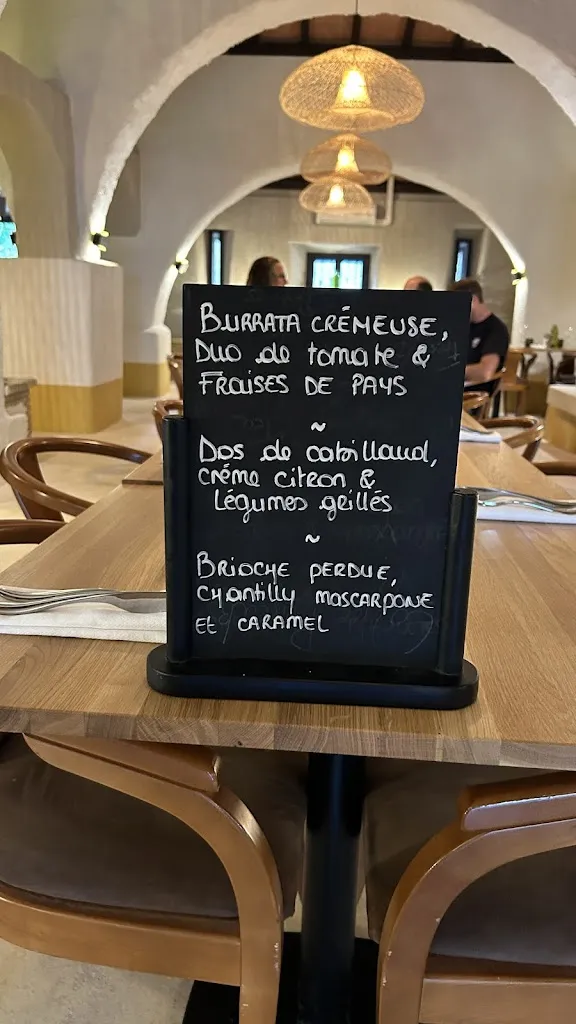 BURRATA CRÉMEUSE,
Duo de tomate &
FRAISES DE PAYS
~
Dos de cabillaud,
crème citron &
Légumes grillés
~
BRIOCHE PERDUE,
CHANTILLY MASCARPONE
ET CARAMEL